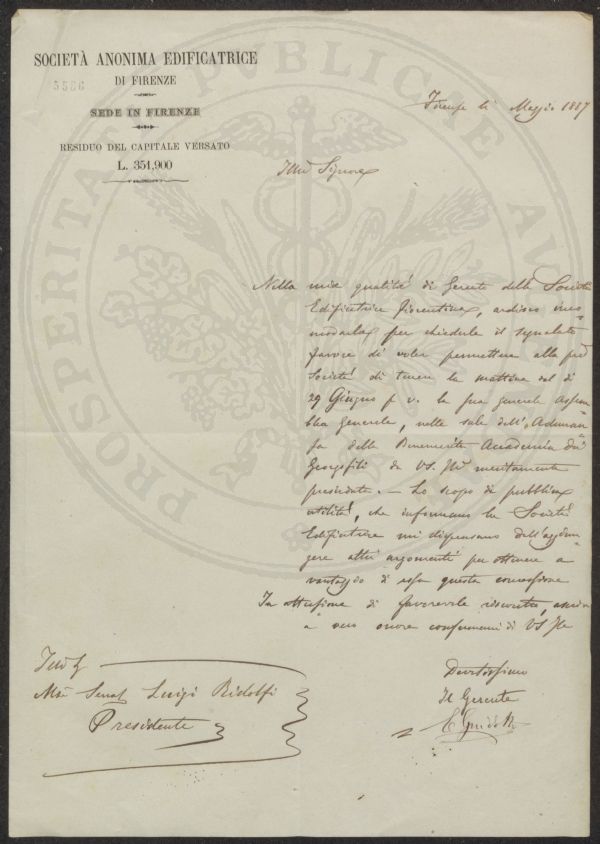 SOCIETÀ ANONIMA EDIFICATRICE
DI FIRENZE
5586
SEDE IN FIRENZE
RESIDUO DEL CAPITALE VERSATO
L. 351,900
Firenze li Maggio 1887
Illmo Signore
Nella mia qualità di Gerente della Società
Edificatrice Fiorentina, ardisco inco-
modarla per chiederle il segnalato
favore di voler permettere alla pred
Società di tenere la mattina del dì
29 Giugno p. v. la sua generale Assem
blea Generale, nelle sale dell'Adunan
za della Benemerita Accademia dei
Georgofili da VS. Illma meritamente
presieduta. — Lo scopo di pubblica
utilità, che informano la Società
Edificatrice mi dispensano dell'aggiun
gere altri argomenti per ottenere a
vantaggio di essa questa concessione
In attenzione di favorevole riscontro,
a vero onore confermarmi di VS Ill
Devotissimo
Il Gerente
E Guidotti
Illmo Sig
Mse Senat Luigi Ridolfi
Presidente
PROSPERITATI PUBLICAE AUGENDAE